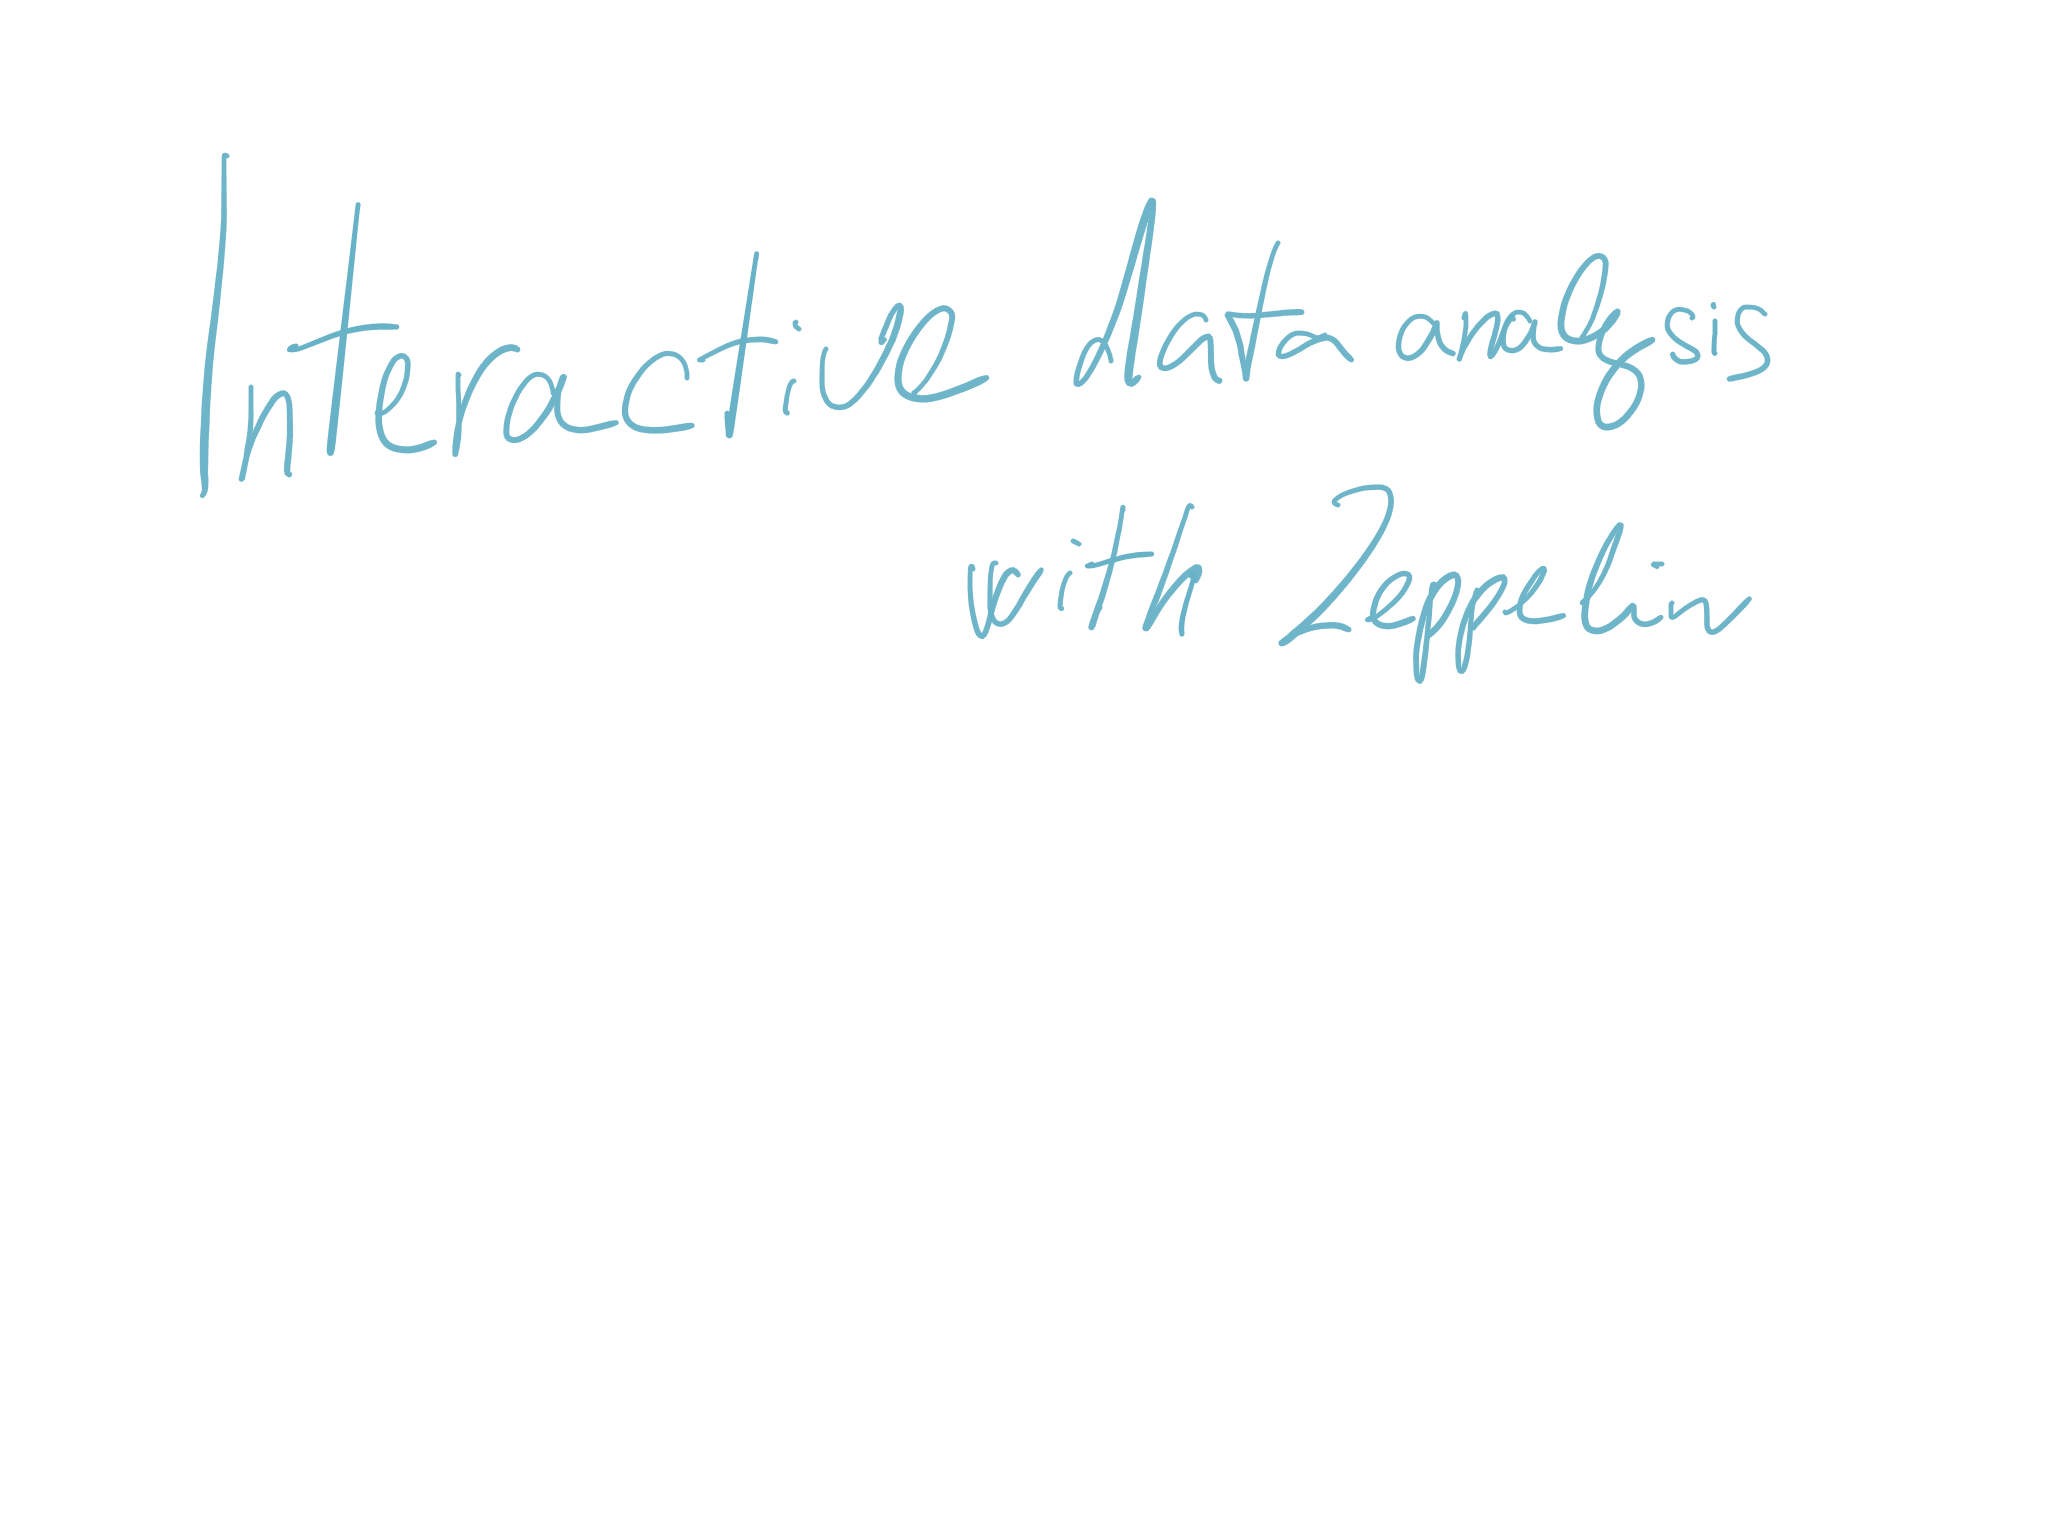 Interactive data analysis
with Zeppelin